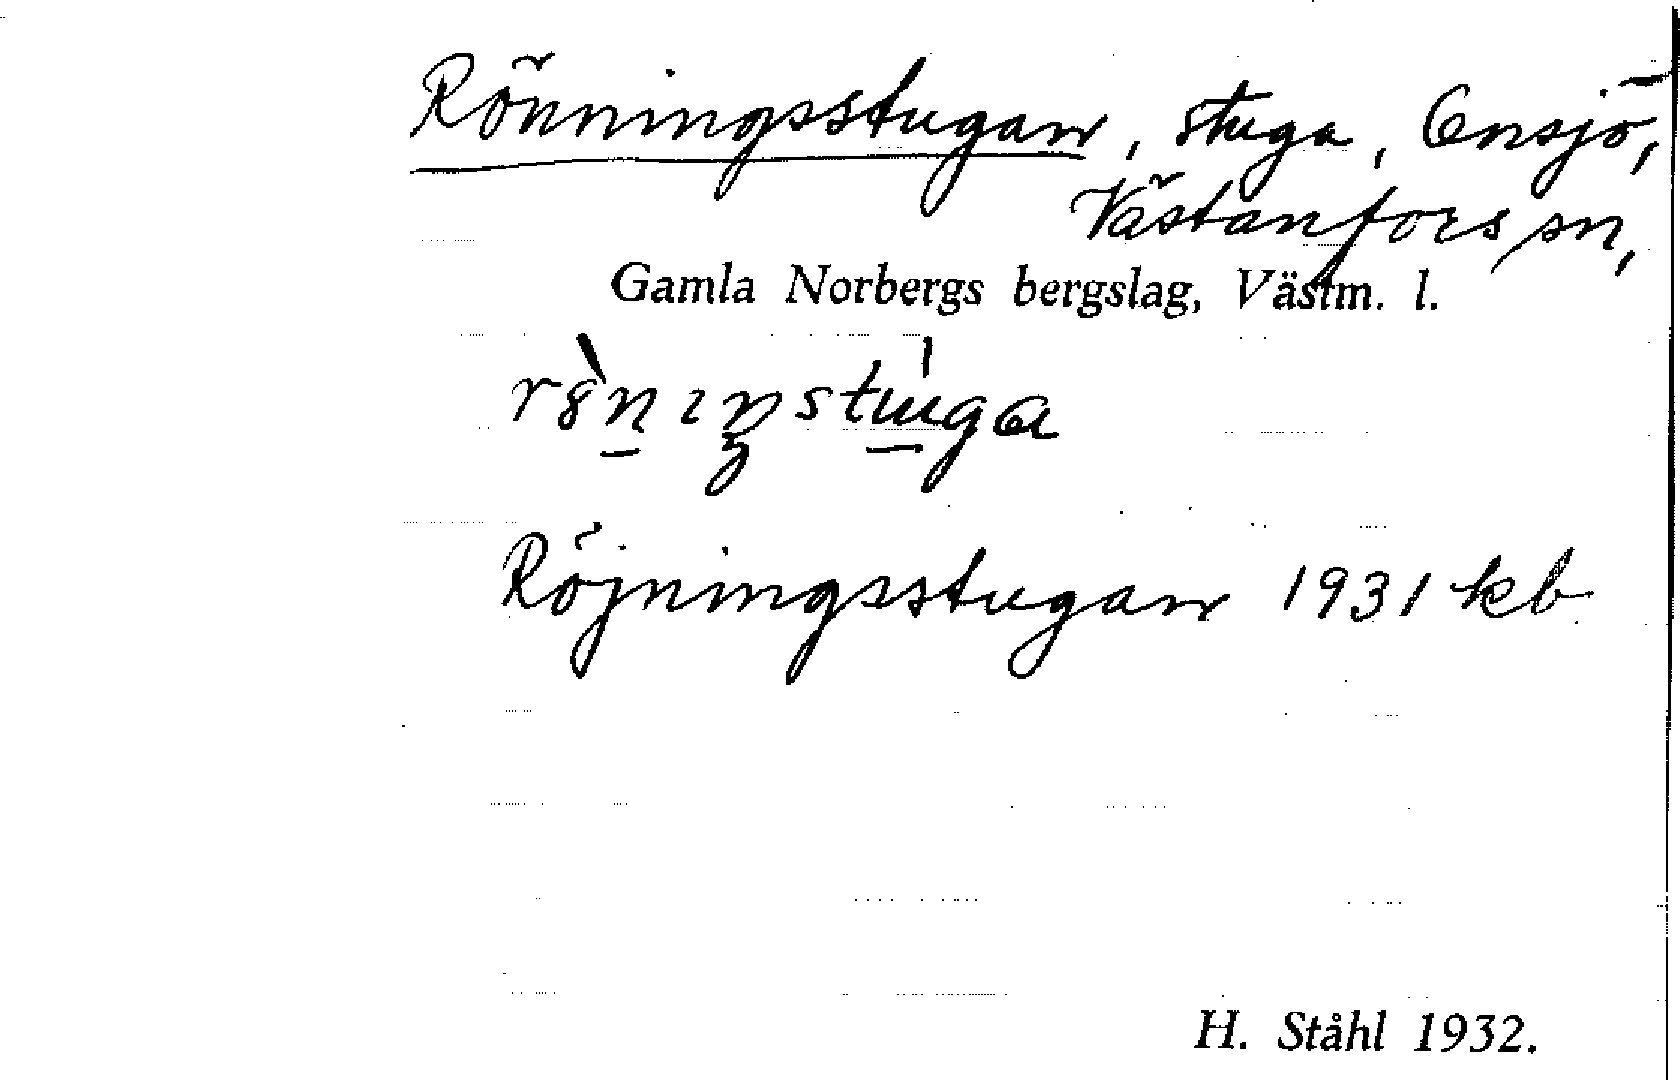 Rönningsstugan, stuga, Ensjö,
Västanfors sn,
Gamla Norbergs bergslag, Västm. l.
Röjningsstugan 1931 kb
H. Ståhl 1932.